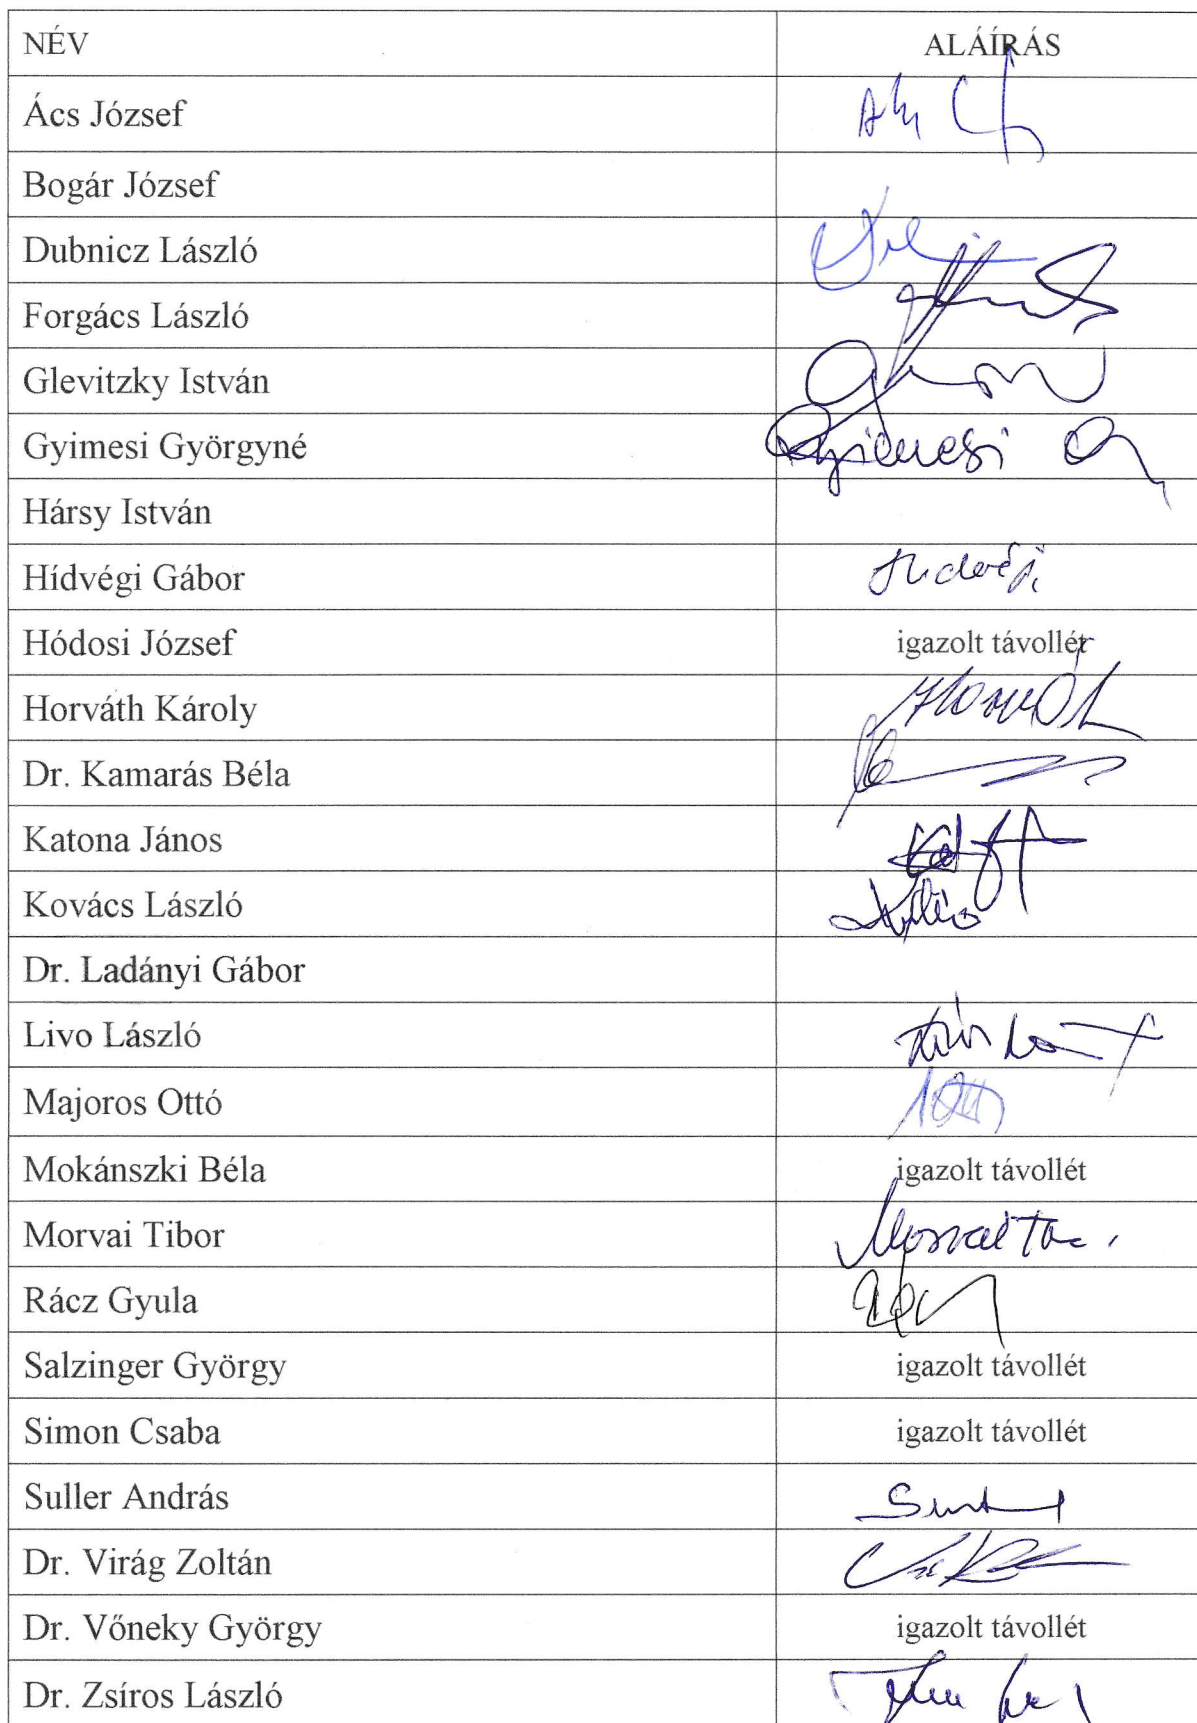 NÉV ALÁÍRÁS
Ács József
Bogár József
Dubnicz László
Forgács László
Glevitzky István
Gyimesi Györgyné Gyimesi
Hársy István
Hídvégi Gábor Hidvégi
Hódosi József igazolt távollét
Horváth Károly Horváth
Dr. Kamarás Béla
Katona János
Kovács László
Dr. Ladányi Gábor
Livo László
Majoros Ottó
Mokánszki Béla igazolt távollét
Morvai Tibor Morvai
Rácz Gyula
Salzinger György igazolt távollét
Simon Csaba igazolt távollét
Suller András
Dr. Virág Zoltán
Dr. Vőneky György igazolt távollét
Dr. Zsíros László